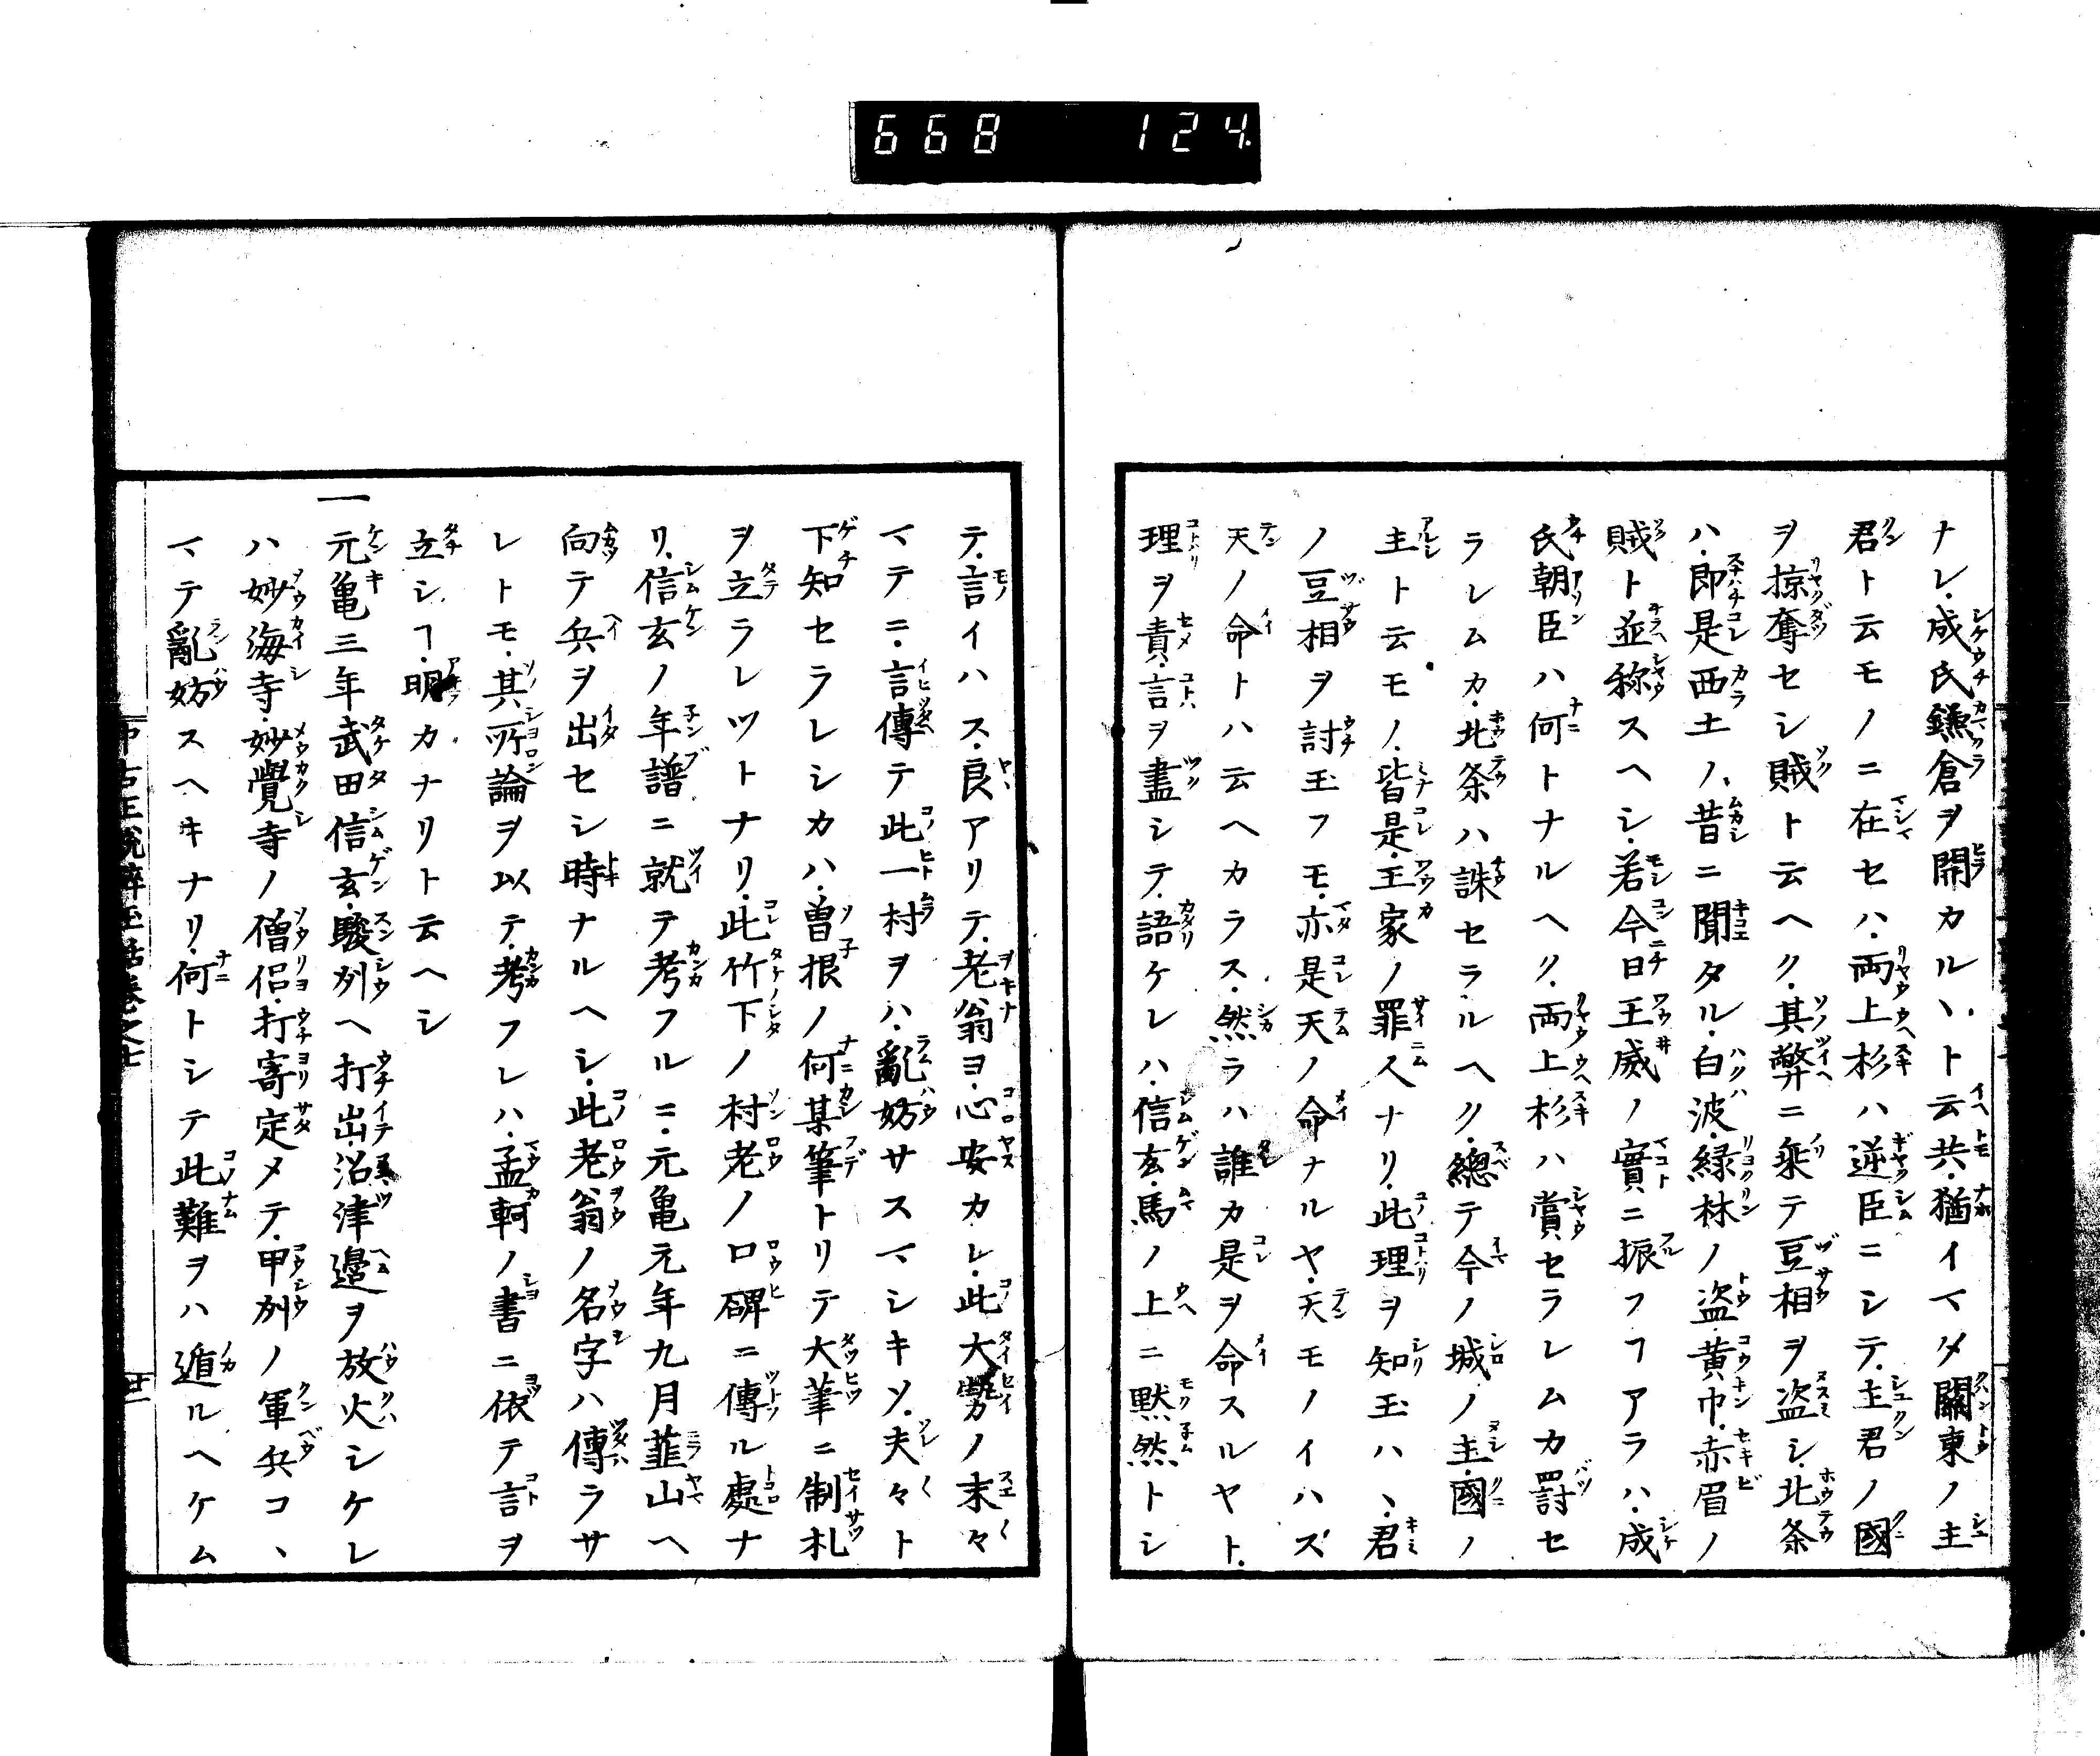 668 124
ナレ成氏鎌倉ヲ開カルヽト云共猶イマタ關東ノ主
君ト云モノニ在セハ両上杉ハ逆臣ニシテ主君ノ國
ヲ掠奪セシ賊ト云ヘク其弊ニ乘テ豆相ヲ盗シ北条
ハ即是西土ノ昔ニ聞タル白波緑林ノ盗黄巾赤眉ノ
賊ト並称スヘシ若今日王威ノ實ニ振フヿアラハ成
氏朝臣ハ何トナルヘク両上杉ハ賞セラレムカ罰セ
ラレムカ北条ハ誅セラルヘク總テ今ノ城ノ主國ノ
主ト云モノ皆是王家ノ罪人ナリ此理ヲ知玉ハヽ君
ノ豆相ヲ討玉フモ亦是天ノ命ナルヤ天モノイハズ
天ノ命トハ云ヘカラス然ラハ誰カ是ヲ命スルヤト
理ヲ責言ヲ盡シテ語ケレハ信玄馬ノ上ニ黙然トシ
テ言イハス良アリテ老翁ヨ心安カレ此大勢ノ末々
マテニ言傳テ此一村ヲハ亂妨サスマシキソ夫々ト
下知セラレシカハ曽根ノ何某筆トリテ大筆ニ制札
ヲ立ラレツトナリ此竹下ノ村老ノ口碑ニ傳ル處ナ
リ信玄ノ年譜ニ就テ考フルニ元亀元年九月韮山ヘ
向テ兵ヲ出セシ時ナルヘシ此老翁ノ名字ハ傳ラサ
レトモ其所論ヲ以テ考フレハ孟軻ノ書ニ依テ言ヲ
立シヿ明カナリト云ヘシ
一元亀三年武田信玄駿州ヘ打出沼津邉ヲ放火シケレ
ハ妙海寺妙覺寺ノ僧侶打寄定メテ甲州ノ軍兵コヽ
マテ亂妨スヘキナリ何トシテ此難ヲハ遁ルヘケム